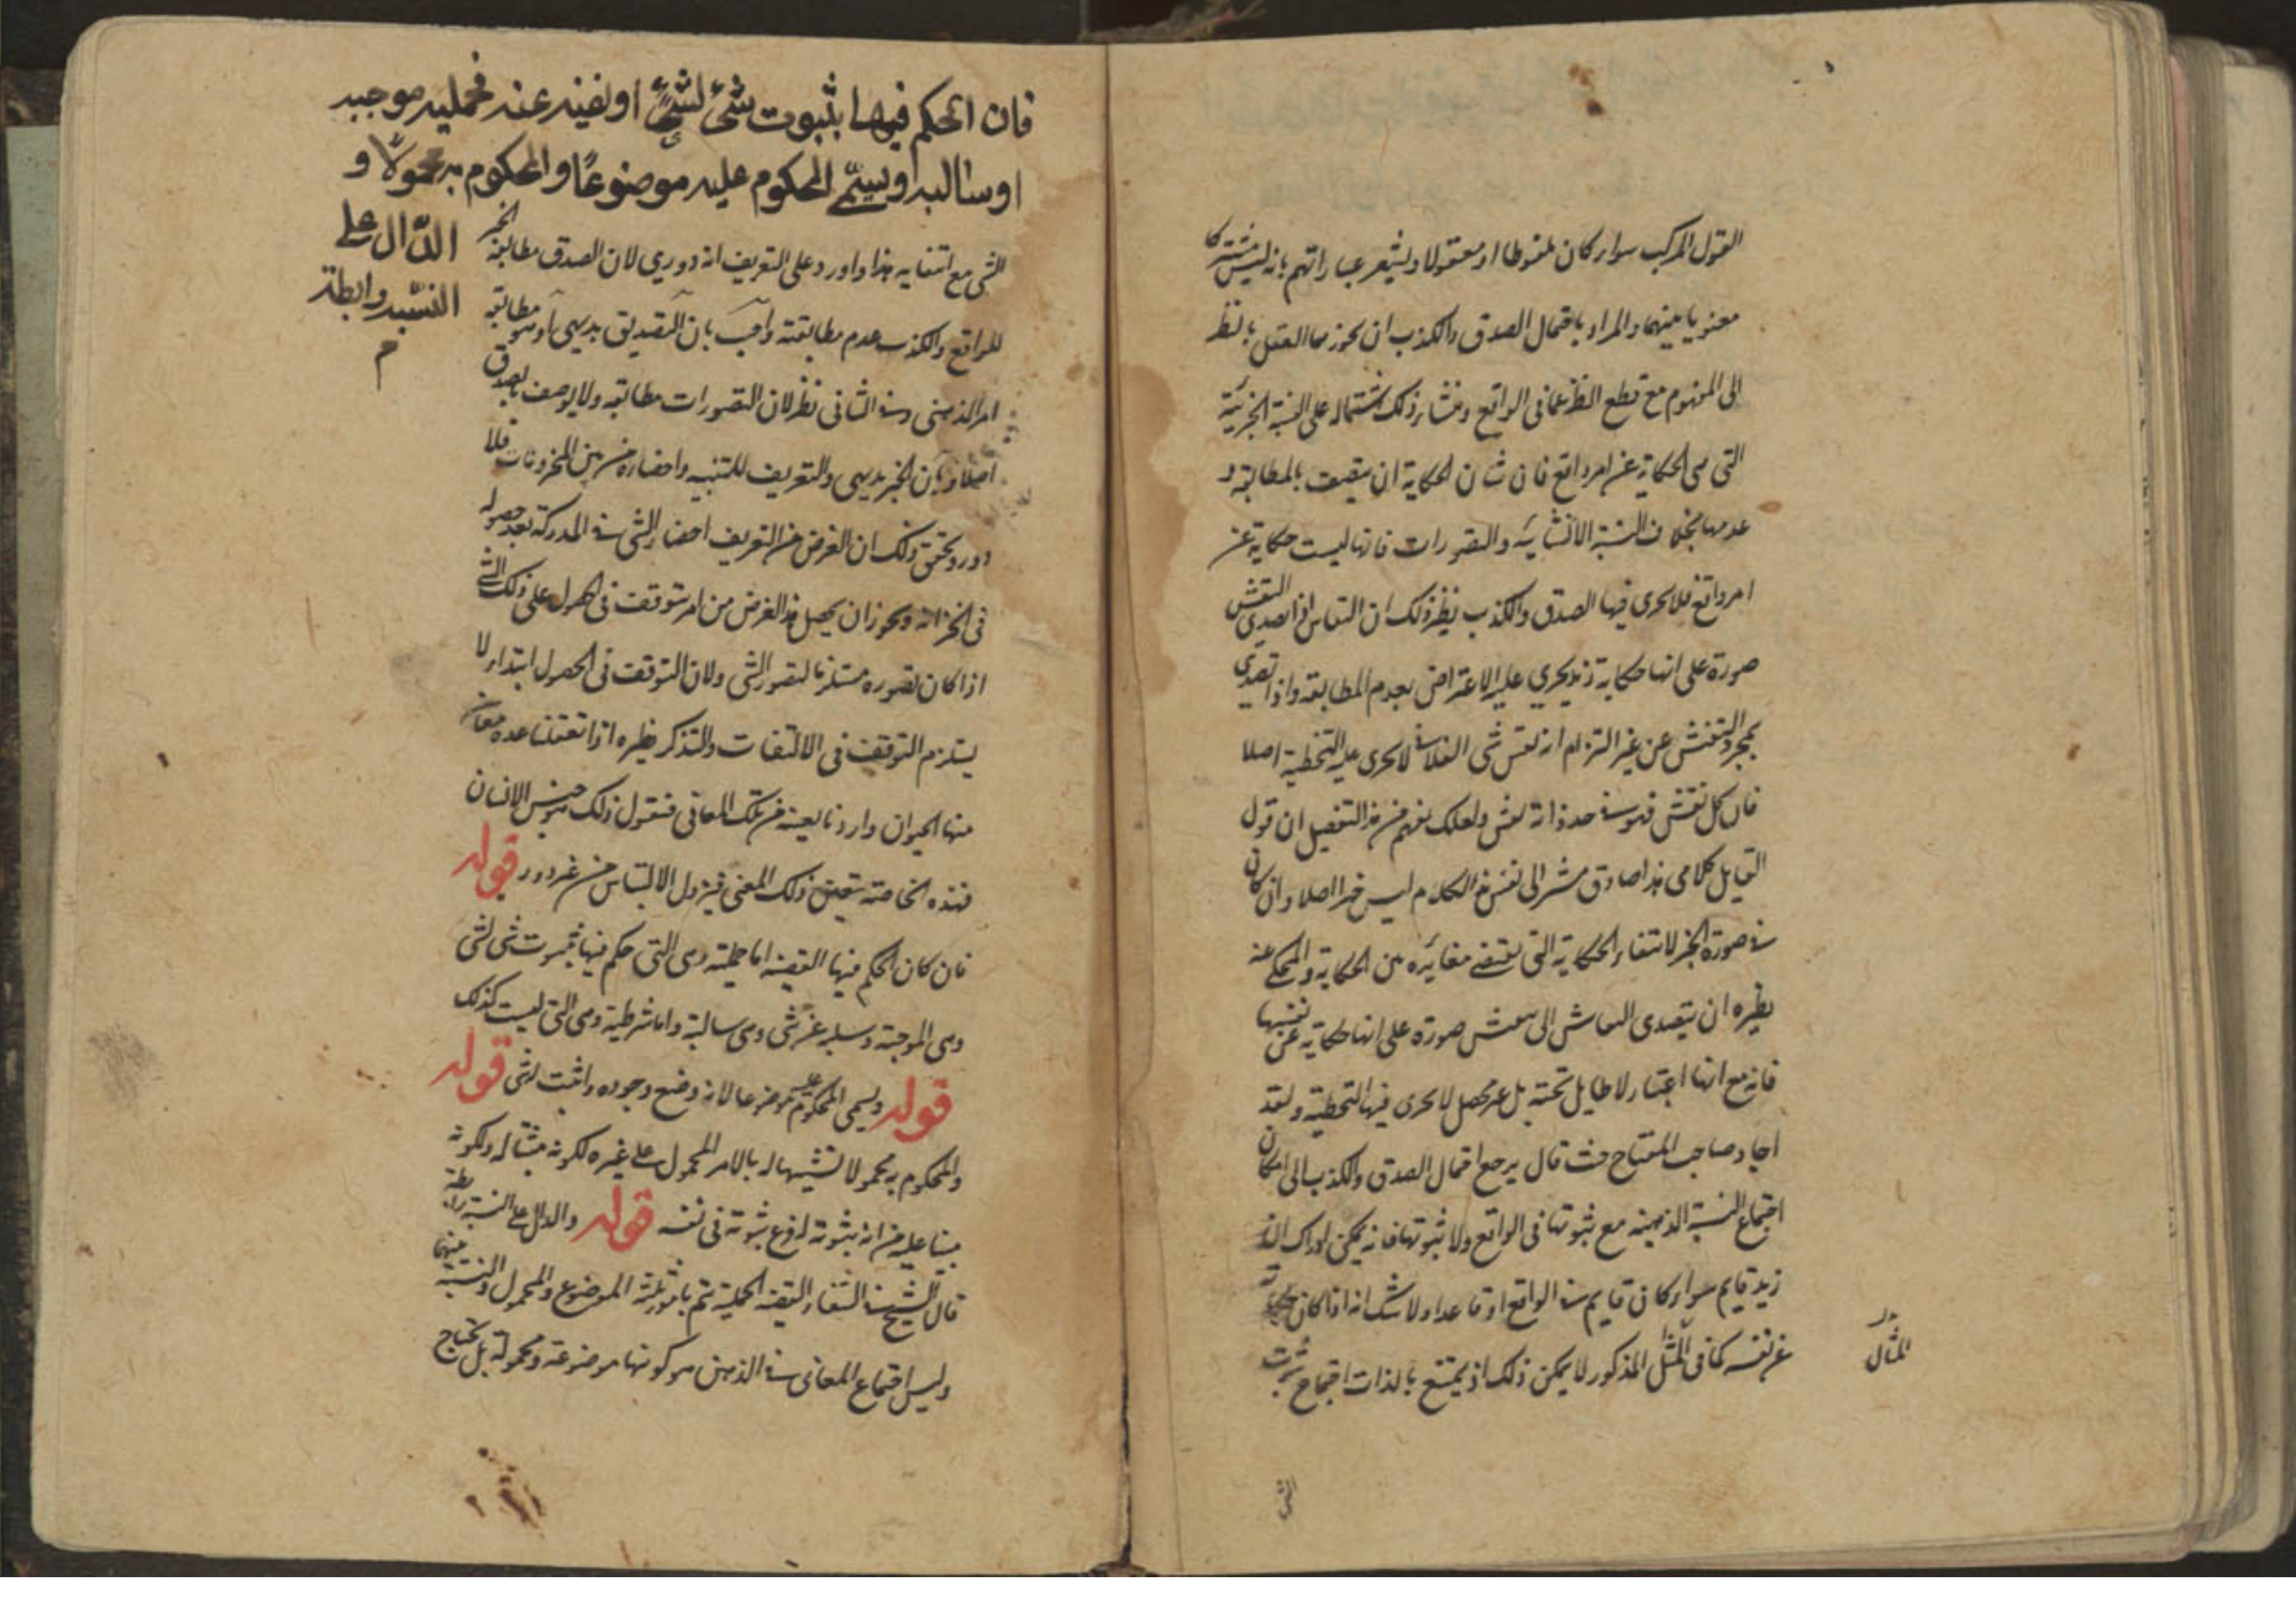 القول المركب سواء كان ملفوظا او معقولا ويشعر عباراتهم بانه ليس مشتركا
معنويا بينهما والمراد باحتمال الصدق والكذب ان يجوزهما العقل بالنظر
الى المفهوم مع قطع النظر عما فى الواقع ومنشاء ذلك اشتماله على النسبة الخبرية
التى هى الحكاية عن امر واقع فان شان الحكاية ان يتصف بالمطابقة و
عدمها بخلاف النسبة الانشائية والتصورات فانها ليست حكاية عن
امر واقع فلا يجرى فيها الصدق والكذب نظير ذلك ان النقاش اذا تصدى النقش
صورة على انها حكاية زيد يجري عليه الاعتراض بعدم المطابقة واذا تصدى
بمجرد النقش عن غير التزام انه نقش شى الفلانى لا يجرى عليه التخطية اصلا
فان كل نقش فهو فى حد ذاته نقش ولعلك تفهم من هذا التفصيل ان قول
القايل كلامى هذا صادق مشيرا الى نفس هذا الكلام ليس خبرا اصلا وان كان
فى صورة الخبر لانتفاء الحكاية التى تقتضى مغايرة بين الحكاية والمحكى عنه
نظيره ان يتصدى النقاش الى نقش صورة على انها حكاية عن نفسها
فانه مع انها اعتبار لا طايل تحته بل غير محصل لا يجرى فيها التخطية ولقد
اجاد صاحب المفتاح حيث قال يرجع احتمال الصدق والكذب الى امكان
اجتماع النسبة الذهنية مع ثبوتها فى الواقع ولا ثبوتها فانه يمكن ادراك ان
زيد قايم سواء كان قايم فى الواقع او قاعدا ولا شك انه اذا كان حكاية
عن نفسه كما فى المثل المذكور لا يمكن ذلك اذ يمتنع بالذات اجتماع ثبوت
المثال
الشى
فان الحكم فيها بثبوت شئ لشئ او نفيه عنه فحملية موجبة
او سالبة ويسمى المحكوم عليه موضوعًا والمحكوم به محمولًا و
الدّال على
النسبة رابطة
م
الشى مع انتفايه هذا واورد على التعريف انه دوري لان الصدق مطابقة الخبر
للواقع والكذب عدم مطابقته واجيب بان التصديق بديهى او هو مطابقة
امر الذهنى وفى الثانى نظر لان التصورات مطابقة ولا يوصف بالصدق
اصلا وبان الخبر بديهى والتعريف للتنبيه واحضاره من بين المخزونات فلا
دور وتحقيق ذلك ان الغرض من التعريف احضار الشى فى المدركة بعد حصوله
فى الخزانة ويجوز ان يحصل هذا الغرض من امر يتوقف فى الحصول على ذلك الشى
اذا كان تصوره مستلزما لتصور الشى ولان التوقف فى الحصول ابتداء لا
يستلزم التوقف فى الالتفات والتذكر نظيره اذا تعقلنا عدة معان
منها الحيوان واردنا تعيينه من تلك المعانى فنقول ذلك هو جنس الانسان
فهذه الخاصة تعين ذلك المعنى فيزول الالتباس من غير دور قوله
فان كان الحكم فيها القضية اما حملية وهى التى حكم فيها بثبوت شى لشى
وهى الموجبة وسلبه عن شى وهى سالبة واما شرطية وهى التى ليست كذلك
قوله ويسمى المحكوم عليه موضوعا لانه وضع وجوده واثبت لشى قوله
والمحكوم به محمولا تشبيها له بالامر المحمول على غيره لكونه مثبتا له ولكونه
مبنيا عليه من انه ثبوته فرع ثبوته فى نفسه قوله والدال على النسبة رابطة
قال الشيخ فى الشفاء القضية الحملية يتم بامور ثلثة الموضوع والمحمول والنسبة بينهما
وليس اجتماع المعانى فى الذهن هو كونها موضوعة ومحمولة بل تحتاج